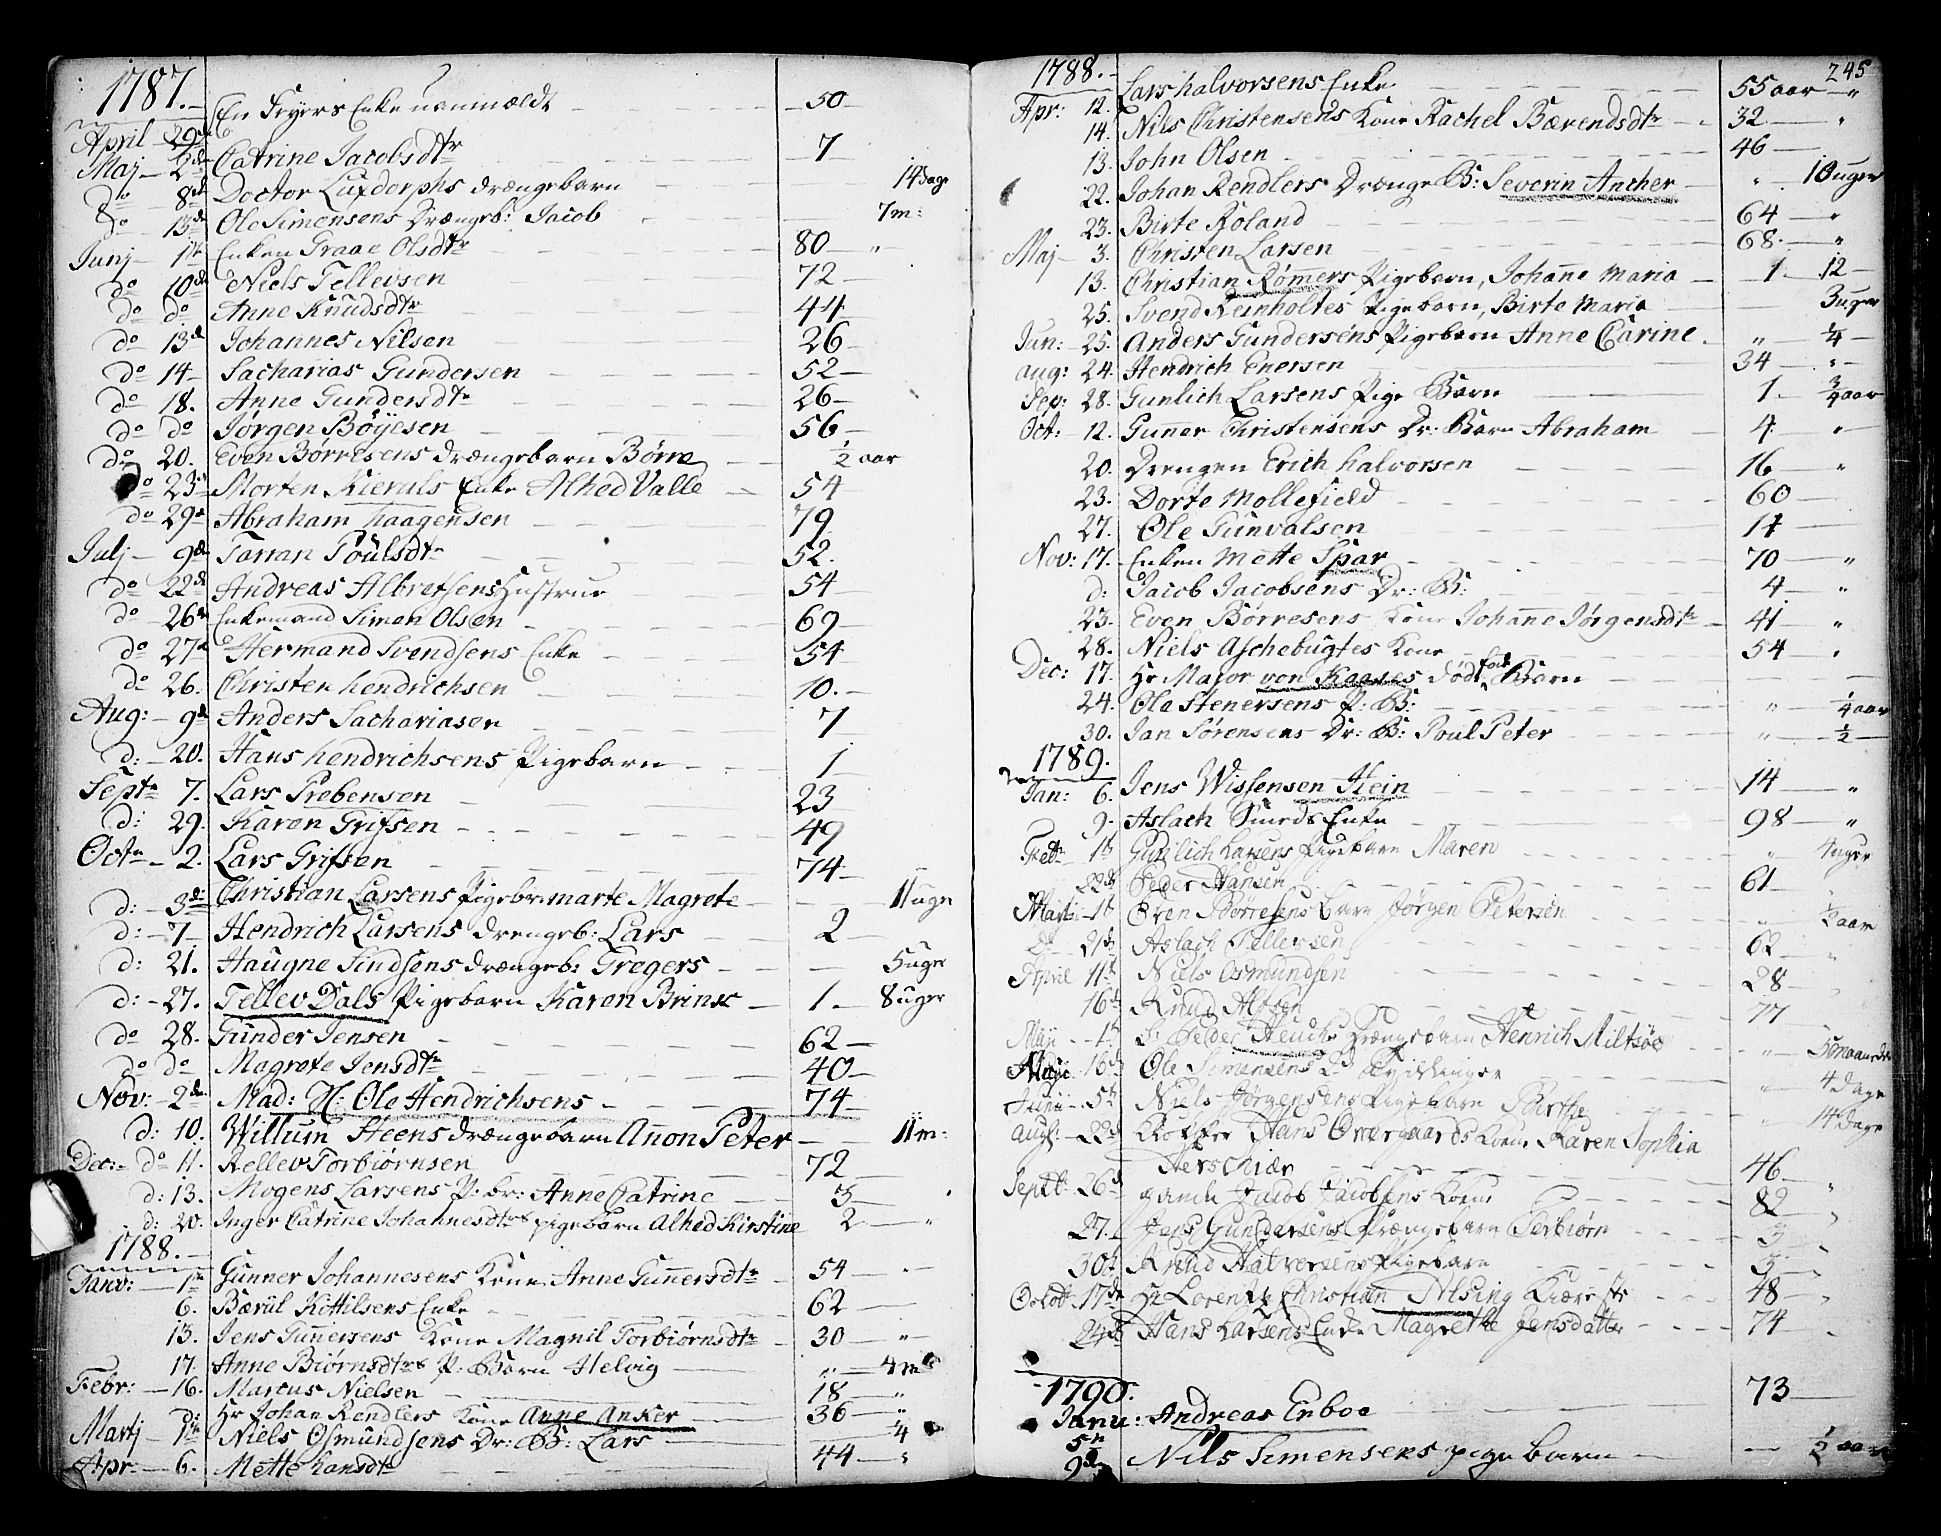 1787.
April 29de En Feyers Enke unemældt 50
Maj 2de Catrine Jacobsdtr 7
do 8de Doctor Luxdorphs drængebarn 14 dage
do 13de Ole Simensens Drængeb: Jacob 7 m:
Junj 1te Enken Graae Olsdtr 80 "
do 10de Niels Tellevsen 72
do do Anne Knudsdtr 44
do 13d Johannes Nilsen 26
do 14 Sacharias Gundersen 52
do 18. Anne Gundersdtr 26
do do Jørgen Böyesen 56
do 20. Even Börresens drængebarn Börre ½ aar
do 23 Morten Kierals Enke Alhed Valle 54
do 29 Abraham haagensen 79
Julj 9de Tarran Poulsdtr 52.
do 22de Andreas Albretsens Hustrue 54
do 26 Enkemand Simen Olsen 69
do 27 Hermand Svendsens Enke 54
do 26. Christen hendrichsen 10.
Aug: 9d Anders Sachariasen 7
d: 20. Hans hendrichsens Pigebarn 1
Septr 7. Lars Prebensen 23
d: 29. Karen Grifsen 49
Octr 2. Lars Grifsen 74
d: 3de Christian Larsens Pigebr: marte Magrete 11 uger
d: 7 Hendrich Larsens drengeb: Lars 2
d: 21. Haugne Sindsens drængeb: Gregers 5 uger
d: 27. Tellev Dals Pigebarn Karen Brinse 1. 8 uger
do 28. Gunder Jensen 62
do do Magrete Jensdtr 40
Nov: 2de Mad: H: Ole Hendrichsens 74
d: 10. Willum Steens drængebarn Anon Peter 11 m:
Dec: do 11. Rellev Torbiørnsen 72
d: 13. Mogens Larsens P: br: Anne Catrine 5
d: 20. Inger Catrine Johannesdtrs pigebarn Alhed Kirstine 2 "
1788.
Janv: 1te Gunner Johannesens Kone Anne Gunnersdtr 54
6. Bærul Kittilsens Enke 62
13. Jens Gunnersens Kone Magnil Torbiørnsdtr 30 "
17. Anne Biørnsdtrs P: Barn Helvig " 4 m
Febr: 16. Marcus Nielsen 18 "
d: Hr Johan Rendlers Kone Anne Anker 36 "
Martj 1te Niels Osmundsens Dr: B: Lars 4
Apr: 6. Mette hansdtr 44 "
245
1788.
Apr: 12. Lars halvorsens Enke 55 aar "
14. Nils Christensens Kone Rachel Bærendsdtr 32 "
13. John Olsen 46
22. Johan Rendlers Drænge B: Severin Ancher " 10 uger
23. Birte Roland 64 "
Maj 3. Christen Larsen 68. "
13. Christian Rømers Pigebarn, Johanne Maria 1. 12
25. Svend Reinholtes Pigebarn, Birte Maria 3 uger
Jun: 25. Anders Gundersens Pigebarn Anne Carine " ¼
aug: 24. Hendrich Enersen 34 "
Sep: 28. Gunlich Larsens Pige Barn 1. ¾ aar
Oct: 12. Guner Christensens Dr: Barn Abraham 4 "
20. Drengen Erich halvorsen 16 "
23. Dorte Mollefield 60
27. Ole Gunvalsen 14
Nov: 17. Enken Mette Spar 70 "
d: Jacob Jacobsens Dr: B: 4 "
23. Even Börresens Kone Johanne Jørgensdtr 41 "
28. Niels Aschebugtes Kone 54 "
Dec: 17. Hr Major von Kaases død fød Barn
24. Ole Stenersens P: B: " ¼ aar
30. Jan Sørensens Dr: B: Poul Peter " ½
1789.
Jan: 6. Jens Wissensen Stein 14 "
9. Aslach Smeds Enke 98 "
Febr 1te Gunlich Larsens Pigebarn Maren " 4 uger
22de Peder Hansen 61
Martii 1te Even Börresens barn Jørgen Petersen ½ aar
do 21de Aslach Tellersen 62 "
April 11te Niels Osmundsen 28 "
16te Knud Altsen 77
Maji 1te Peder Heuch Drængebarn Henrich Miltzöe " 5 maaneder
Maji 16de Ole Simensens 2de Tvillinger " 4 Dage
Junii 5te Niels Jørgensens Pigebarn Birthe " 14 Dage
Augs: 22de Hans Overgaards Kone Karen Sophia
Herschiær 46 "
Septbr 26de gamle Jacob Jacobsens Kone 82 "
27. Jens Gundersens Drængebarn Terbiørn 3
30te Knud Halvorsens Pigebarn 3 "
Octobr 17de Hr Lorentz Christian Ilsing Kiæreste 48 "
24de Hans Larsens Enke Magrethe Jensdatter 74 "
1790.
Janu: 5te Andreas Enboe 73
9de Nils Simensens pige barn ½ aar